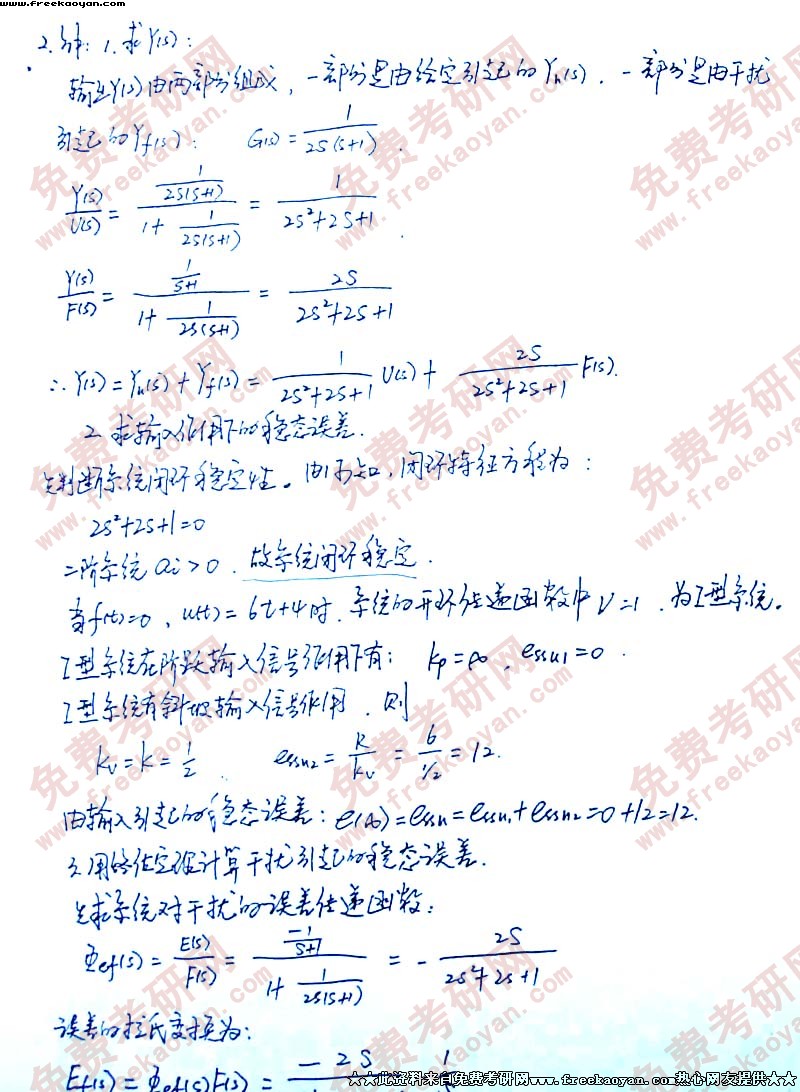 www.freekaoyan.com
2.解：1.求Y(s)：
输出Y(s)由两部分组成，一部分是由给定引起的Yu(s)，一部分是由干扰
引起的Yf(s)： G(s)=1/(2s(s+1)).
Y(s)/U(s) = (1/(2s(s+1)))/(1+1/(2s(s+1))) = 1/(2s²+2s+1).
Y(s)/F(s) = (1/(s+1))/(1+1/(2s(s+1))) = 2s/(2s²+2s+1)
∴Y(s)=Yu(s)+Yf(s)= 1/(2s²+2s+1) U(s)+ 2s/(2s²+2s+1) F(s).
2.求输入作用下的稳态误差.
先判断系统闭环稳定性。由1知，闭环特征方程为：
2s²+2s+1=0
二阶系统 ai>0．故系统闭环稳定．
当f(t)=0，u(t)=6t+4时．系统的开环传递函数中 V=1．为I型系统。
I型系统在阶跃输入信号作用下有： kp=∞．essu1=0．
I型系统有斜坡输入信号作用．则
kv=k=1/2 essu2=R/kv=6/(1/2)=12.
由输入引起的稳态误差：e(∞)=essu=essu1+essu2=0+12=12.
3.用终值定理计算干扰引起的稳态误差.
先求系统对干扰的误差传递函数：
Φef(s)=E(s)/F(s)=(-1/(s+1))/(1+1/(2s(s+1))) = - 2s/(2s²+2s+1)
误差的拉氏变换为：
Ef(s)=Φef(s)F(s)= -2s 1
★☆此资料来自免费考研网www.freekaoyan.com热心网友提供★☆
免费考研网
www.freekaoyan.com